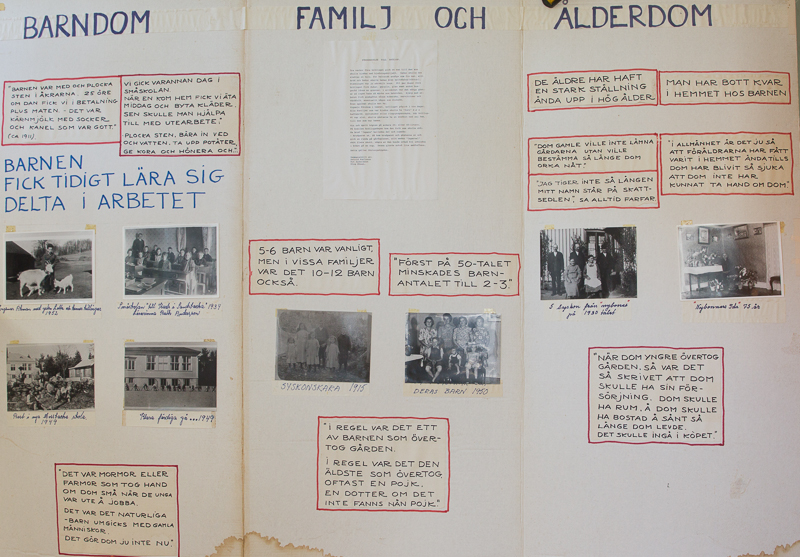 BARNDOM
FAMILJ OCH
ÅLDERDOM
"BARNEN VAR MED OCH PLOCKA
STEN I ÅKRARNA. 25 ÖRE
OM DAN FICK VI I BETALNING
PLUS MATEN - DET VAR
KÄRNMJÖLK MED SOCKER
OCH KANEL SOM VAR GOTT."
(CA 1911)
VI GICK VARANNAN DAG I
SMÅSKOLAN
NÄR EN KOM HEM FICK VI ÄTA
MIDDAG OCH BYTA KLÄDER,
SEN SKULLE MAN HJÄLPA
TILL MED UTEARBETE.
PLOCKA STEN, BÄRA IN VED
OCH VATTEN, TA UPP POTÄTER,
GE KORA OCH HÖNERA OCH."
BARNEN
FICK TIDIGT LÄRA SIG
DELTA I ARBETET
1952
1937
1949
1949
"DET VAR MORMOR ELLER
FARMOR SOM TOG HAND
OM DOM SMÅ NÄR DE UNGA
VAR UTE Å JOBBA.
DET VAR DET NATURLIGA
-BARN UMGICKS MED GAMLA
MÄNNISKOR.
DET GÖR DOM JU INTE NU."
5-6 BARN VAR VANLIGT,
MEN I VISSA FAMILJER
VAR DET 10-12 BARN
OCKSÅ.
"FÖRST PÅ 50-TALET
MINSKADES BARN-
ANTALET TILL 2-3."
SYSKONSKARA 1915
DERAS BARN 1950
"I REGEL VAR DET ETT
AV BARNEN SOM ÖVER-
TOG GÅRDEN.
I REGEL VAR DET DEN
ÄLDSTE SOM ÖVERTOG,
OFTAST EN POJK,
EN DOTTER OM DET
INTE FANNS NÅN POJK."
DE ÄLDRE HAR HAFT
EN STARK STÄLLNING
ÄNDA UPP I HÖG ÅLDER
MAN HAR BOTT KVAR
I HEMMET HOS BARNEN
"DOM GAMLE VILLE INTE LÄMNA
GÅRDARNA UTAN VILLE
BESTÄMMA SÅ LÄNGE DOM
ORKA NÅT."
"JAG TIGER INTE SÅ LÄNGEN
MITT NAMN STÅR PÅ SKATT-
SEDLEN", SA ALLTID FARFAR.
"I ALLMÄNHET ÄR DET JU SÅ
ATT FÖRÄLDRARNA HAR FÅTT
VARIT I HEMMET ÄNDA TILLS
DOM HAR BLIVIT SÅ SJUKA
ATT DOM INTE HAR
KUNNAT TA HAND OM DOM."
5 syskon från
på 1930 talet
75 år
"NÄR DOM YNGRE ÖVERTOG
GÅRDEN, SÅ VAR DET
SÅ SKRIVET ATT DOM
SKULLE HA SIN FÖR-
SÖRJNING. DOM SKULLE
HA RUM, Å DOM SKULLE
HA BOSTAD Å SÅNT SÅ
LÄNGE DOM LEVDE.
DET SKULLE INGÅ I KÖPET."